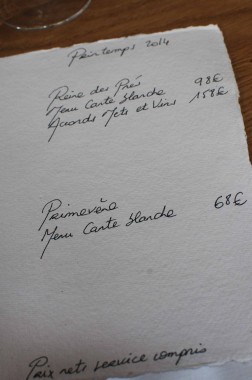 Printemps 2014
Reine des Prés
Menu Carte blanche 98€
Accords Mets et Vins 158€
Primevère
Menu Carte blanche 68€
Prix nets service compris